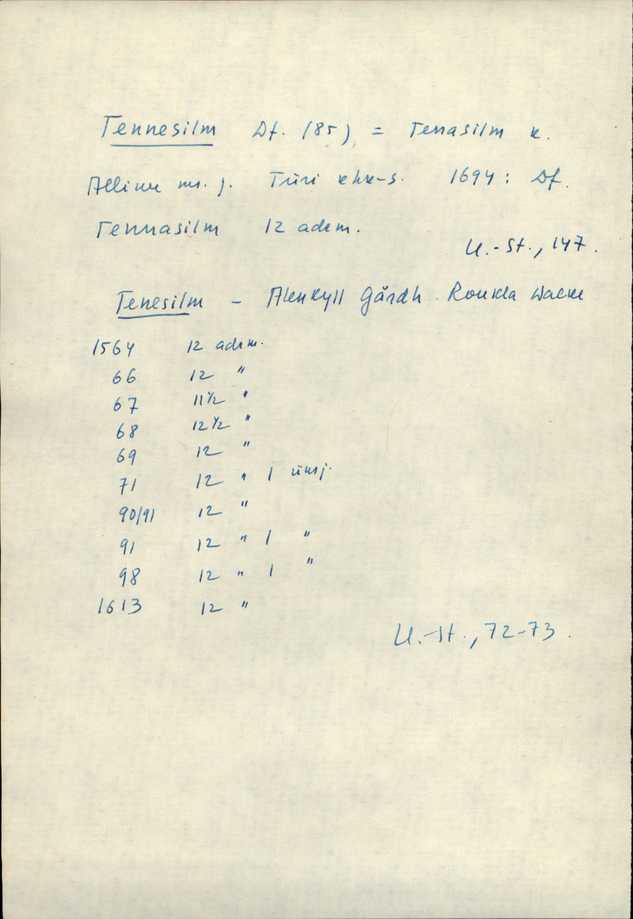 Tennesilm Df. (85) = Tenasilm k.
Alliku m. j. Türi khk-s. 1694: Df.
Tennasilm 12 adrm.
U.-St., 147.
Tenesilm - Alenkyll Gårdh. Roukla Wacke
1564 12 adrm.
66 12 "
67 11½ "
68 12½ "
69 12 "
71 12 " 1 üksj.
90/91 12 "
91 12 " 1 "
98 12 " 1 "
1613 12 "
U.-St., 72-73.